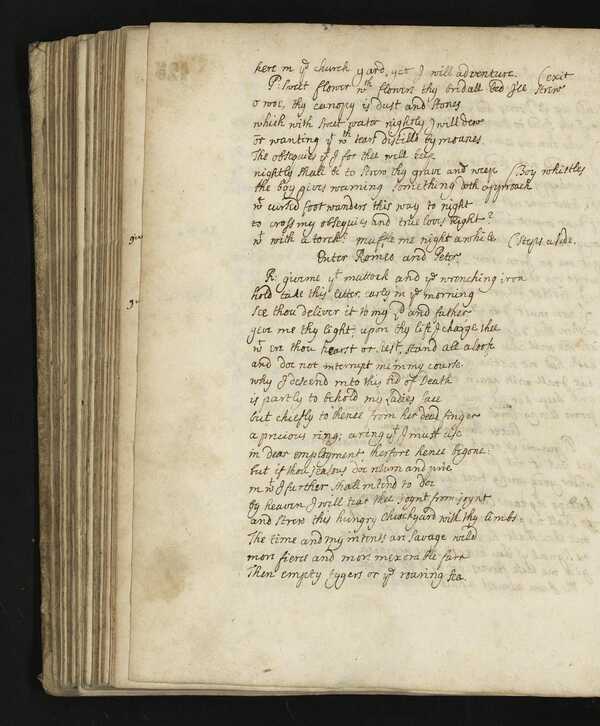 here in ye church yard, yet I will adventure. (exit
P: Sweet flower wth flowers thy bridall bed I'le strew
o woe, thy canopy is dust and stones
which with sweet water nightly I will dew
or wanting yt wth tears distilld by moanes.
The obsequies yt I for thee will keep
nightly shall be to strew thy grave and weep (Boy whistles
the boy gives warning something doth approach
wt cursed foot wanders this way to night
to cross my obsequies and true loves right?
wt with a torch? muffle me night a while (Steps aside.
Enter Romeo and Peter
R: give me yt mattock and ye wrenching iron
hold take this letter, early in ye morning
See thou deliver it to my Ld and father
give me thy light; upon thy life I charge thee
wt ere thou hearst or seest, stand all aloofe
and doe not interrupt me in my course.
why I descend into this bed of Death
is partly to behold my Ladies face
but chiefly to thence from her dead finger
a precious ring; a ring yt I must use
in dear employment therfore hence begone:
but if thou jealous doe return and prie
in wt I further shall intend to doe
by heaven I will tear thee joynt from joynt
and strew this hungry Churchyard with thy limbs.
The time and my intents are savage wild
more fierce and more inexorable farre
Then empty tygers or ye roaring sea.